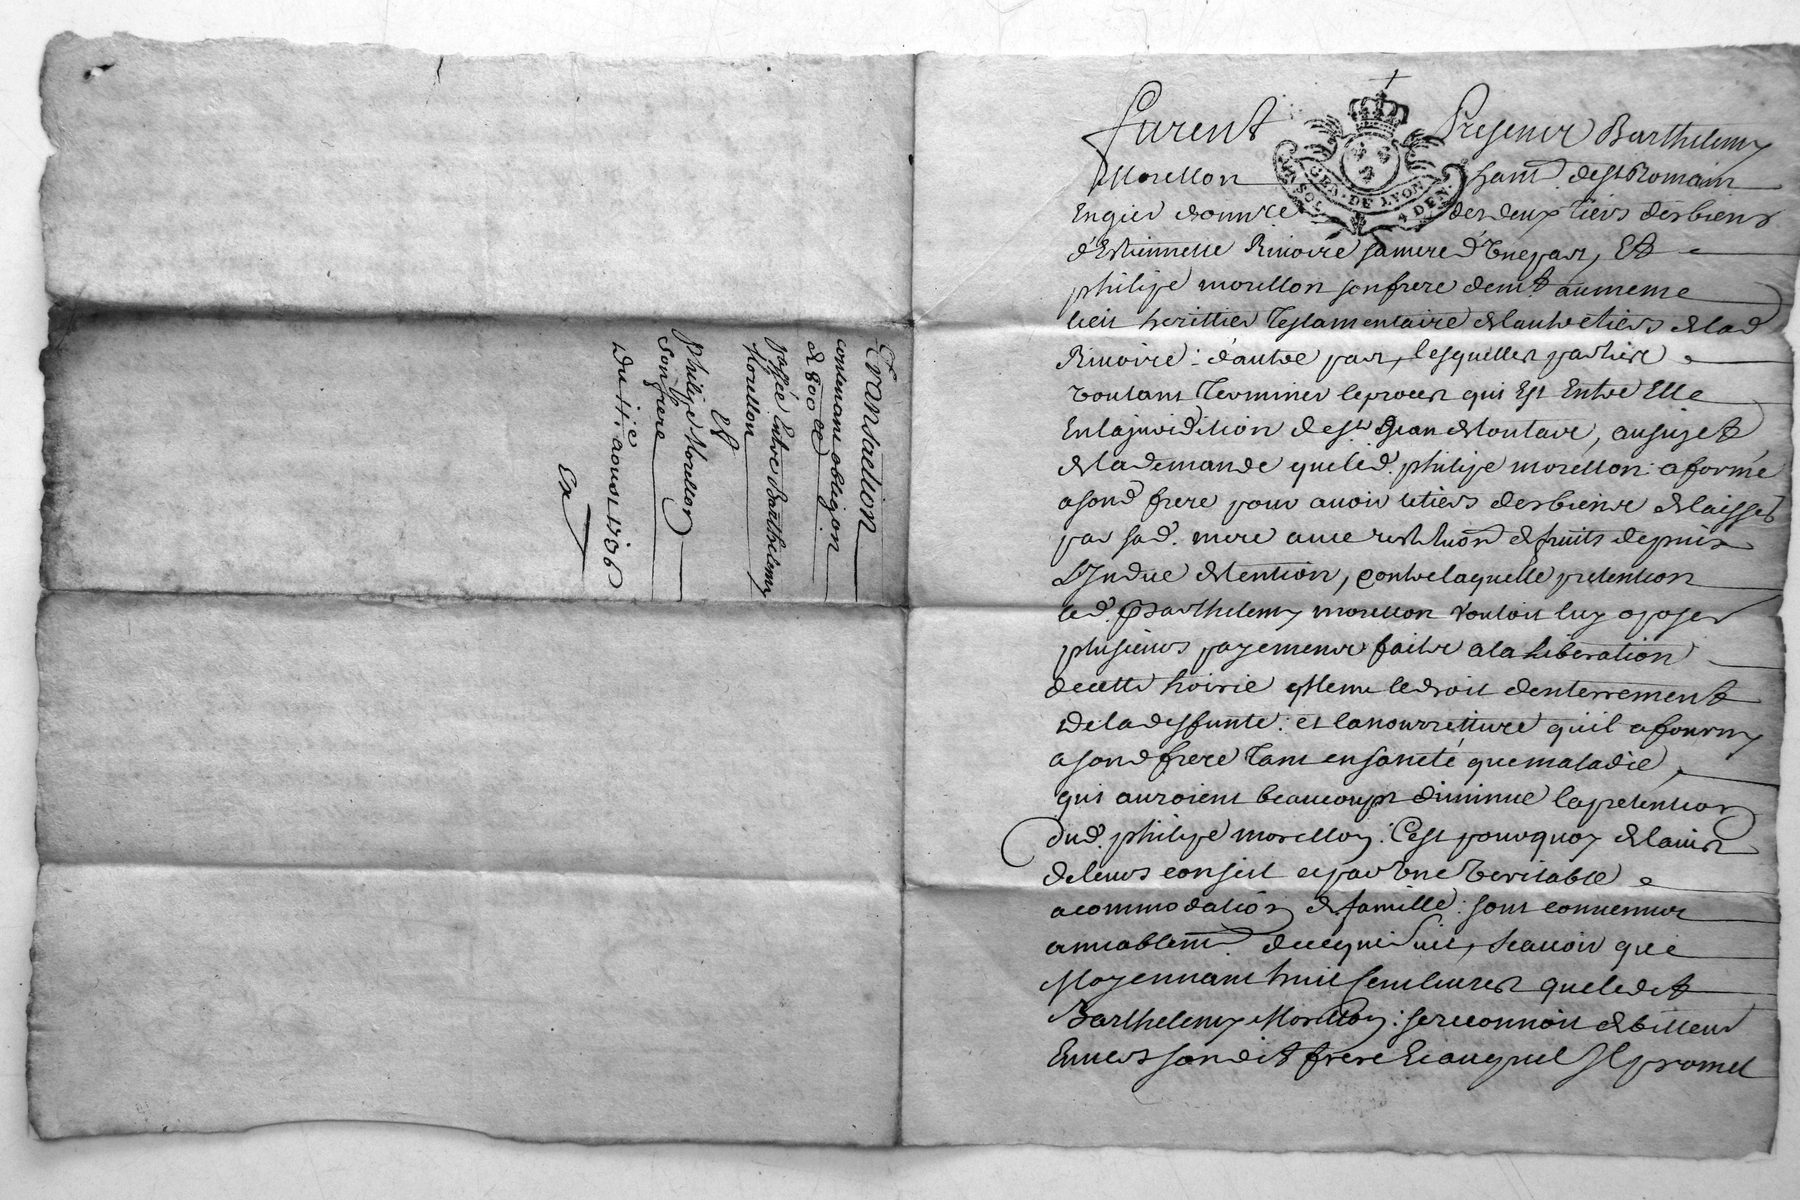 Transaction
contenant obligãon
de 800 #
passée Entre Barthelemy
Morellon
Et
philipe Morellon
son frere
Du 11e aoust 1706
Ex
furent Presents Barthelemy
Morellon hant de st Romain
Engier donn des deux tiers des biens
d'Estiennette Rivoire sa mere d'une part, Et
philipe morellon son frere demt au meme
lieu herittier Testamentaire de lautre tiers de lad
Rivoire : d'autre part, lesquelles parties
voulant Terminer le proces qui Est Entre Elle
En la juridition de st Jean de , au sujet
de la demande que led. philipe morellon : a formé
a sond frere pour avoir le tiers des biens delaissés
par sad. mere avec restitũon de fruits depuis
L'Indue detention, contre laquelle pretention
led. Barthelemy morellon vouloit luy oposer
plusieurs payements faits a la Liberation
de cette hoirie mesme le droit denterrement
De la deffunte : et la nourretture qu'il a fourny
a sond frere Tant en santé que maladie,
qui auroient beaucoupt diminué la pretention
dud. philipe morellon : C'est pourquoy de lavis
de leurs conseil et par une veritable
acommodation de famille : sont convenus
amiablemt de ce qui suit, scavoir que
Moyennant huit sent livres que ledit
Barthelemy Morellon : se reconnoit debitteur
Envers son dit frere Et auquel Il promet
GEN. DE LYON
SOL
4 DEN.